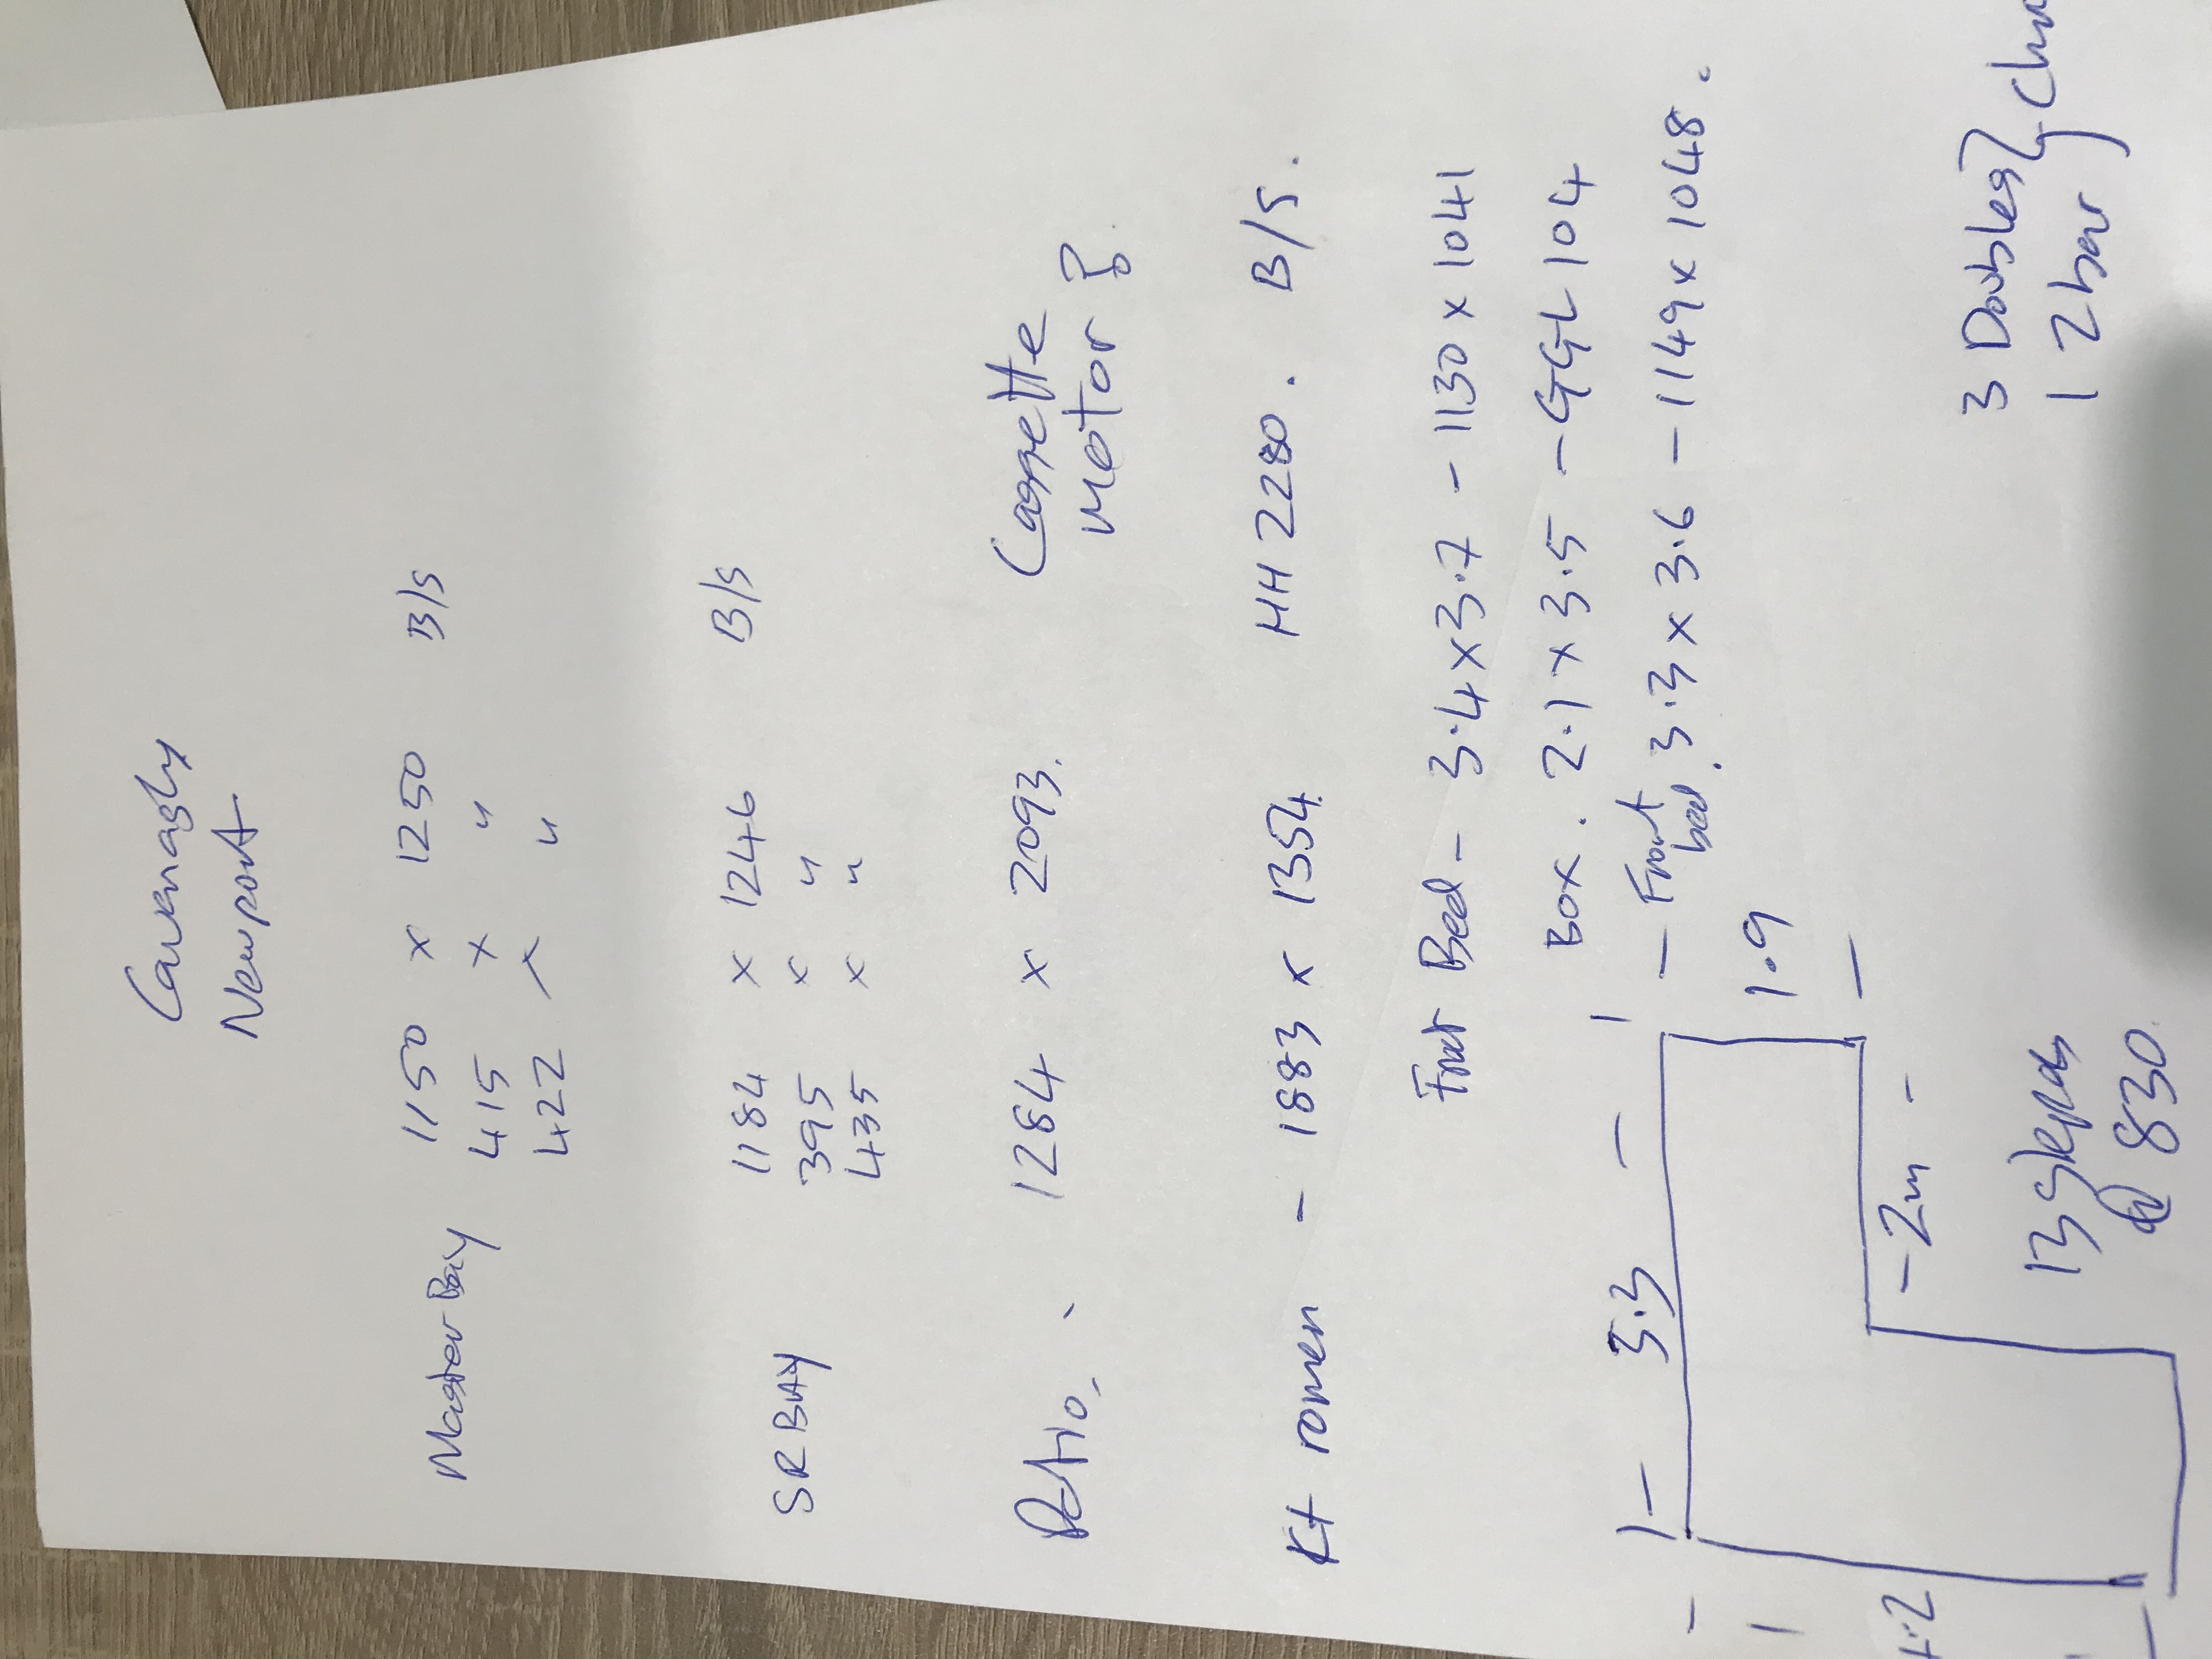 Cavenaghy
Newport
Master Bay 1150 x 1250 B/S
415 x "
422 x "
SR BAY 1184 x 1246 B/S
395 x "
435 x "
Patio. 1284 x 2093. Cassette
motor ?
Kt romen - 1883 x 1354 HH 2280. B/S.
Front Bed - 3.4 x 3.7 - 1130 x 1041
Box. 2.1 x 3.5 - GGL 104
- Front
bed. 3.3 x 3.6 - 1149 x 1048.
3.3
1.9
2m
13 Steps
@ 830
3 Doubles
1 2 bar